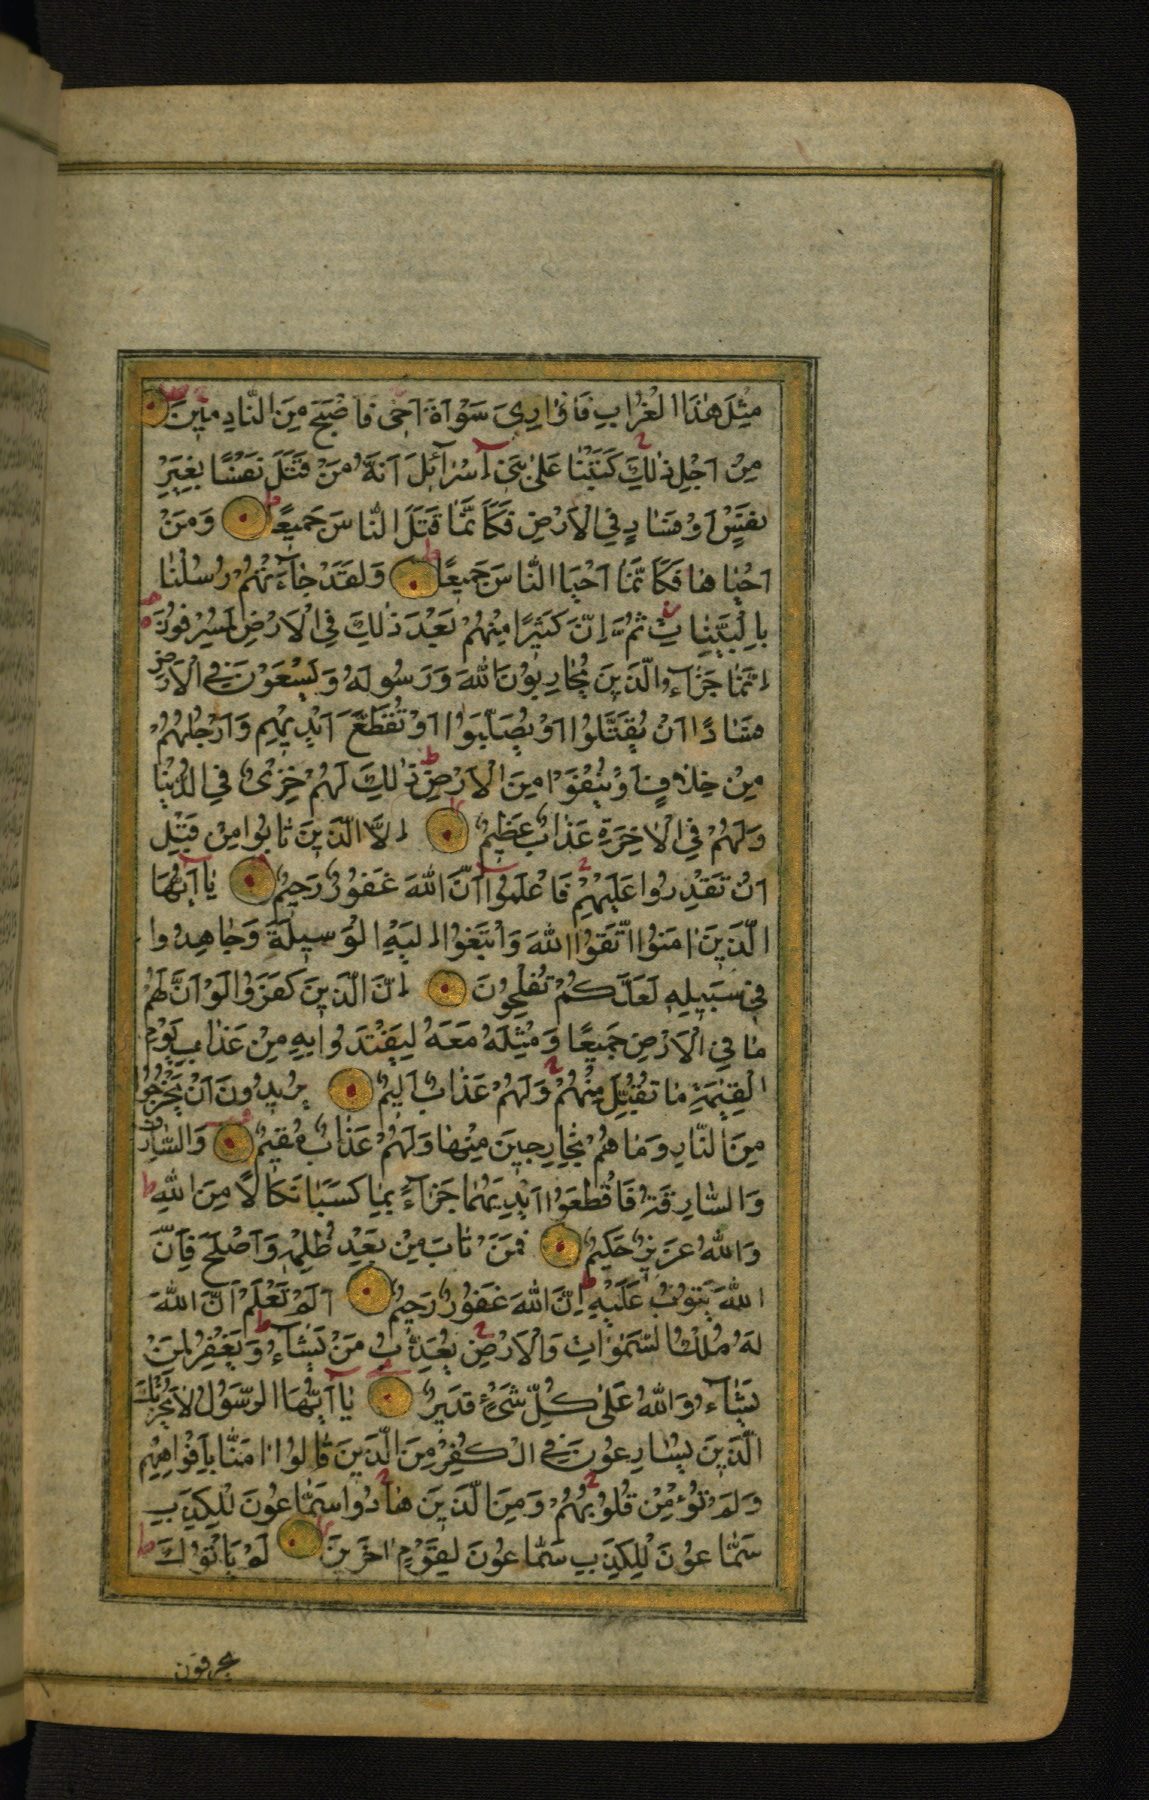 مِثْلَ هٰذَا الْغُرَابِ فَاُوٰارِىَ سَوْاَةَ اَخٖى فَاَصْبَحَ مِنَ النَّادِمٖينَ
مِنْ اَجْلِ ذٰلِكَ كَتَبْنٰا عَلىٰ بَنٖى اِسْرٰائٖلَ اَنَّهُ مَنْ قَتَلَ نَفْسًا بِغَيْرِ
نَفْسٍ اَوْ فَسٰادٍ فِى الْاَرْضِ فَكَاَنَّمٰا قَتَلَ النّٰاسَ جَمٖيعًا وَمَنْ
اَحْيٰاهٰا فَكَاَنَّمٰا اَحْيَا النّٰاسَ جَمٖيعًا وَلَقَدْ جٰاءَتْهُمْ رُسُلُنٰا
بِالْبَيِّنٰاتِ ثُمَّ اِنَّ كَثٖيرًا مِنْهُمْ بَعْدَ ذٰلِكَ فِى الْاَرْضِ لَمُسْرِفُونَ
اِنَّمٰا جَزٰاءُ الَّذٖينَ يُحٰارِبُونَ اللهَ وَرَسُولَهُ وَيَسْعَوْنَ فِى الْاَرْضِ
فَسٰادًا اَنْ يُقَتَّلُوا اَوْ يُصَلَّبُوا اَوْ تُقَطَّعَ اَيْدٖيهِمْ وَاَرْجُلُهُمْ
مِنْ خِلٰافٍ اَوْ يُنْفَوْا مِنَ الْاَرْضِ ذٰلِكَ لَهُمْ خِزْىٌ فِى الدُّنْيٰا
وَلَهُمْ فِى الْاٰخِرَةِ عَذٰابٌ عَظٖيمٌ اِلَّا الَّذٖينَ تٰابُوا مِنْ قَبْلِ
اَنْ تَقْدِرُوا عَلَيْهِمْ فَاعْلَمُوا اَنَّ اللهَ غَفُورٌ رَحٖيمٌ يٰا اَيُّهَا
الَّذٖينَ اٰمَنُوا اتَّقُوا اللهَ وَابْتَغُوا اِلَيْهِ الْوَسٖيلَةَ وَجٰاهِدُوا
فٖى سَبٖيلِهٖ لَعَلَّكُمْ تُفْلِحُونَ اِنَّ الَّذٖينَ كَفَرُوا لَوْ اَنَّ لَهُمْ
مٰا فِى الْاَرْضِ جَمٖيعًا وَمِثْلَهُ مَعَهُ لِيَفْتَدُوا بِهٖ مِنْ عَذٰابِ يَوْمِ
الْقِيٰمَةِ مٰا تُقُبِّلَ مِنْهُمْ وَلَهُمْ عَذٰابٌ اَلٖيمٌ يُرٖيدُونَ اَنْ يَخْرُجُوا
مِنَ النّٰارِ وَمٰا هُمْ بِخٰارِجٖينَ مِنْهٰا وَلَهُمْ عَذٰابٌ مُقٖيمٌ وَالسّٰارِقُ
وَالسّٰارِقَةُ فَاقْطَعُوا اَيْدِيَهُمٰا جَزٰاءً بِمٰا كَسَبٰا نَكٰالًا مِنَ اللهِ
وَاللهُ عَزٖيزٌ حَكٖيمٌ فَمَنْ تٰابَ مِنْ بَعْدِ ظُلْمِهٖ وَاَصْلَحَ فَاِنَّ
اللهَ يَتُوبُ عَلَيْهِ اِنَّ اللهَ غَفُورٌ رَحٖيمٌ اَلَمْ تَعْلَمْ اَنَّ اللهَ
لَهُ مُلْكُ السَّمٰوَاتِ وَالْاَرْضِ يُعَذِّبُ مَنْ يَشٰاءُ وَيَغْفِرُ لِمَنْ
يَشٰاءُ وَاللهُ عَلىٰ كُلِّ شَىْءٍ قَدٖيرٌ يٰا اَيُّهَا الرَّسُولُ لَا يَحْزُنْكَ
الَّذٖينَ يُسٰارِعُونَ فِى الْكُفْرِ مِنَ الَّذٖينَ قٰالُوا اٰمَنّٰا بِاَفْوٰاهِهِمْ
وَلَمْ تُؤْمِنْ قُلُوبُهُمْ وَمِنَ الَّذٖينَ هٰادُوا سَمّٰاعُونَ لِلْكَذِبِ
سَمّٰاعُونَ لِلْكَذِبِ سَمّٰاعُونَ لِقَوْمٍ اٰخَرٖينَ لَمْ يَاْتُوكَ
يحرفون